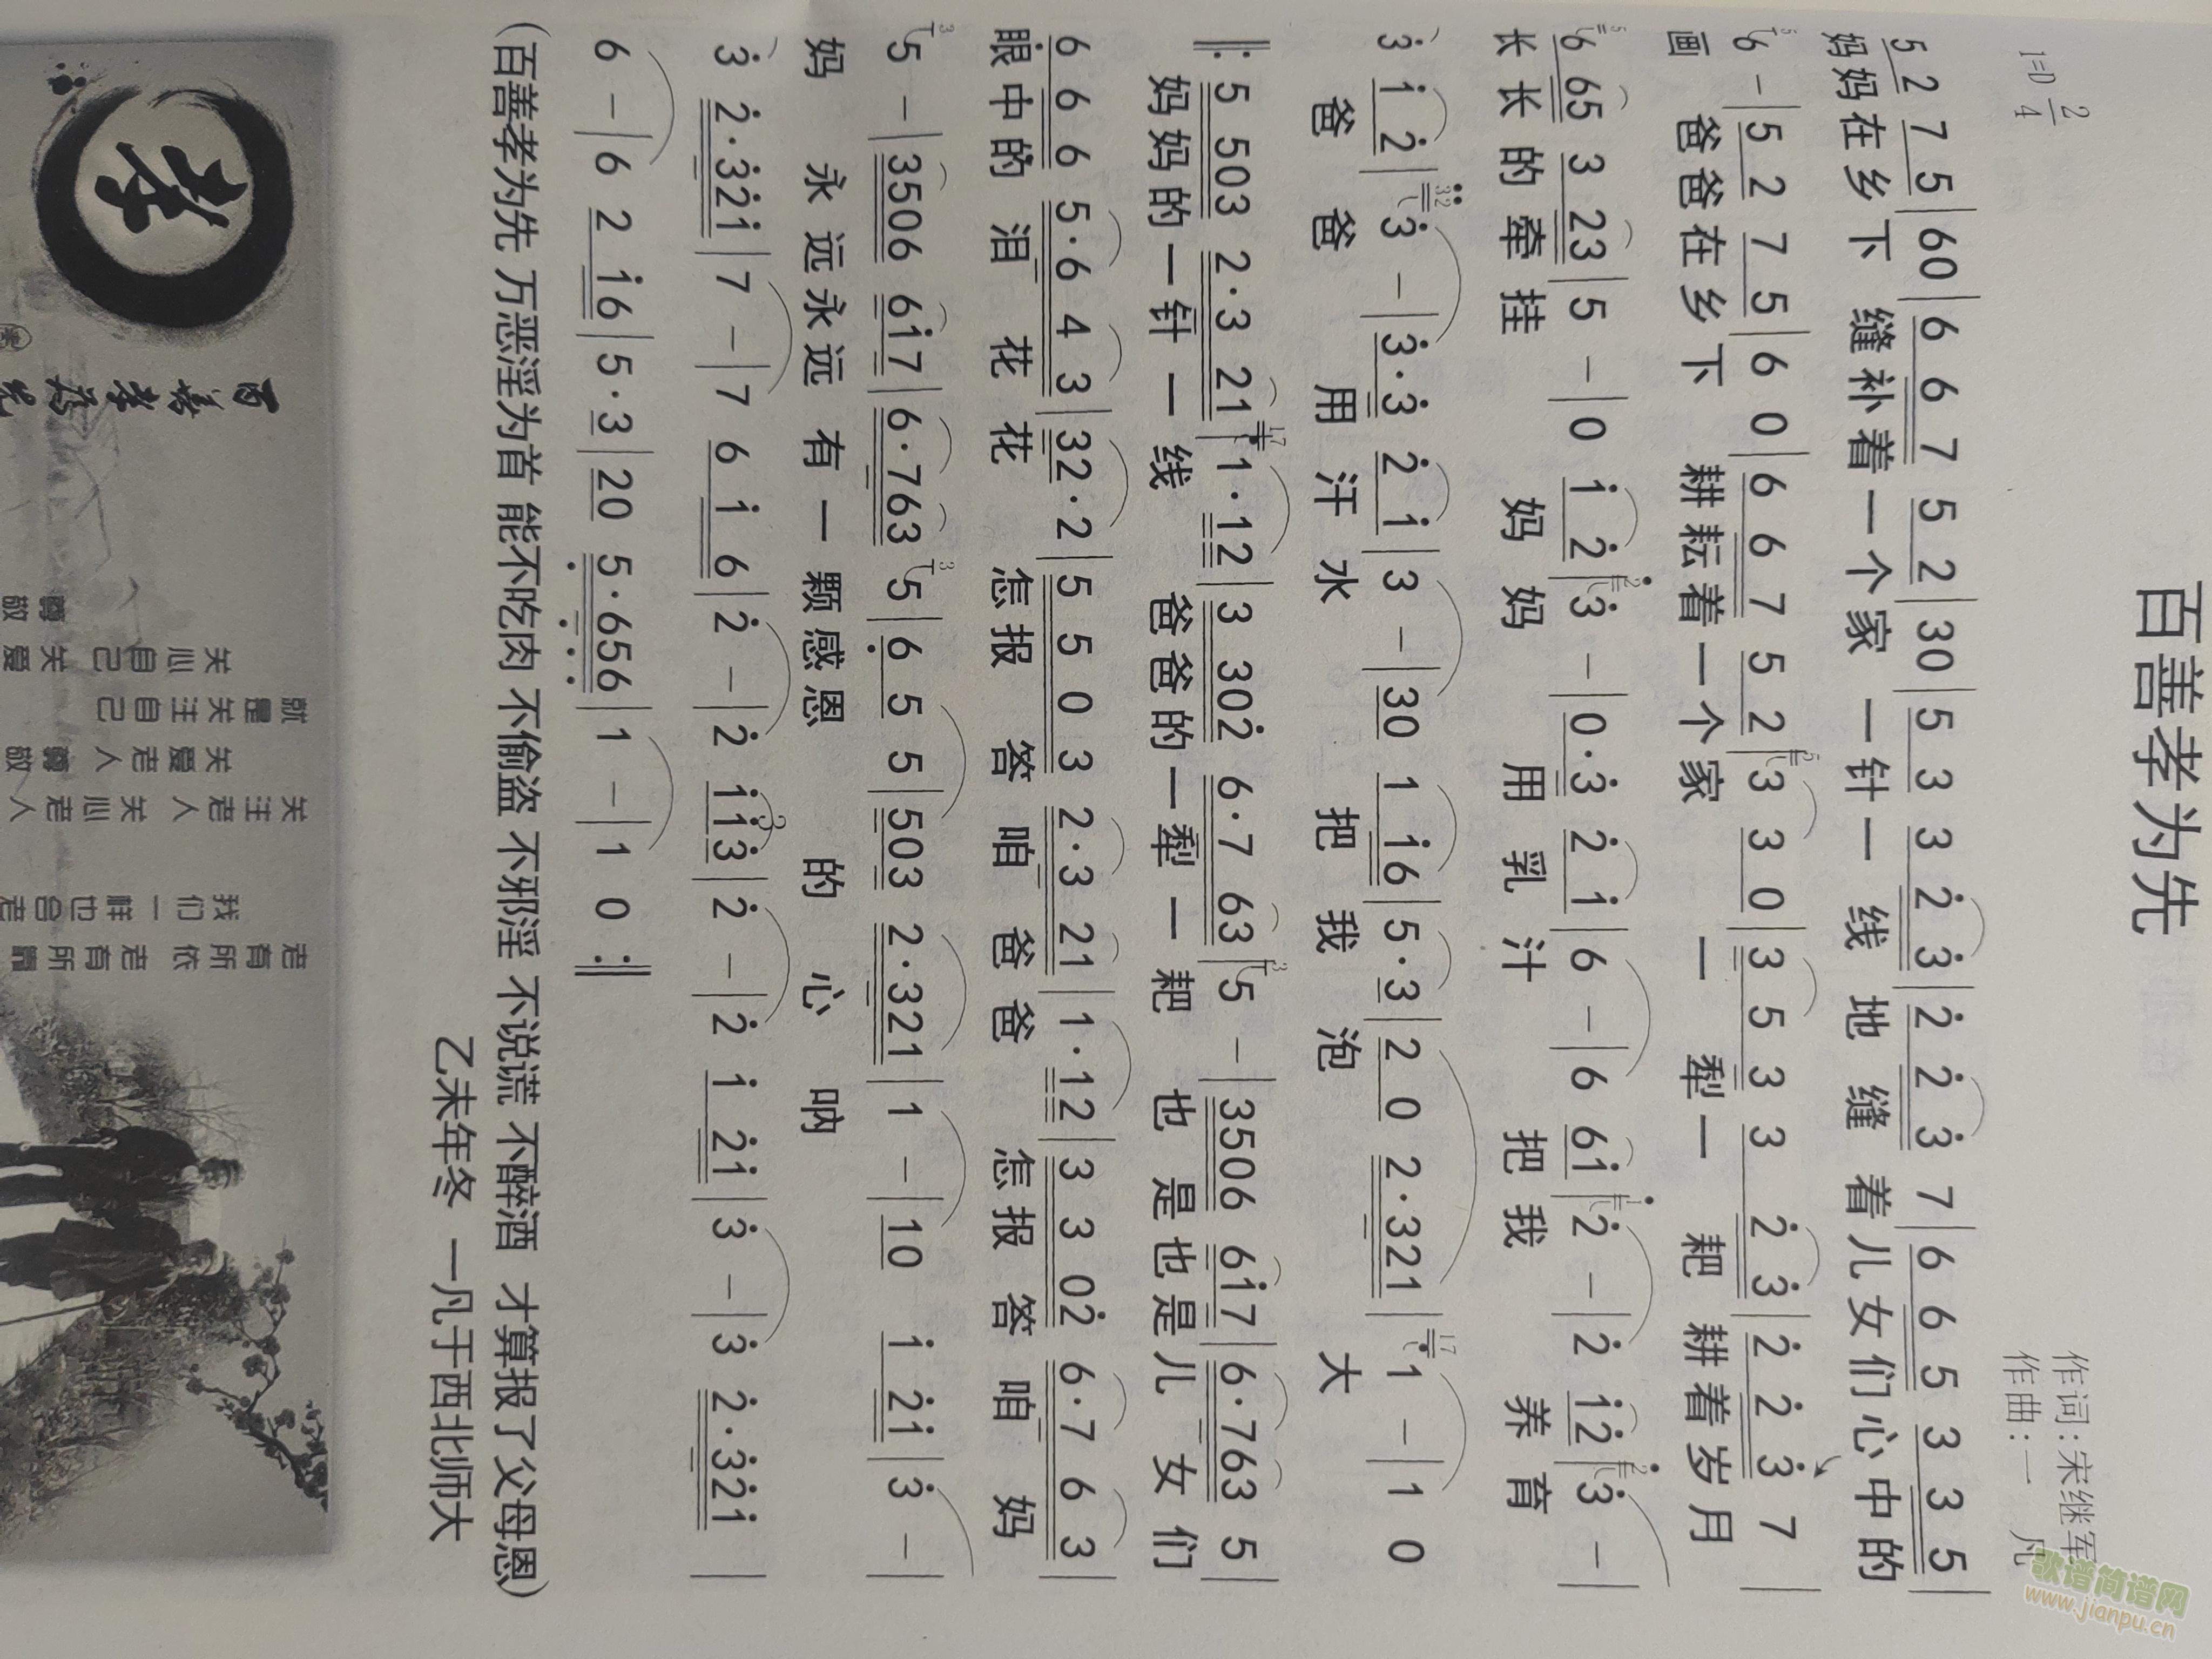 百善孝为先
1=D 2/4
作词:宋继军
作曲:一 凡
5 2 7 5 | 60 | 6 6 7 5 2 | 30 | 5 3 3 2̇ 3̇ | 2̇ 2̇ 3̇ 7 | 6 6 5 3 3 5 |
妈妈在乡下 缝补着一个家 一针一 线 地 缝 着儿女们心中的
6 - | 5 2 7 5 | 6 0 | 6 6 7 5 2 | 3 3 0 | 3 5 3 3 2̇ 3̇ | 2̇ 2̇ 3̇ 7 |
画 爸爸在乡下 耕耘着一个家 一 犁一 耙 耕着岁月
6 65 3 23 | 5 - | 0 1̇ 2̇ | 3̇ - | 0·3̇ 2̇ 1̇ | 6 - | 6 61̇ | 2̇ - | 2̇ 1̇2̇ | 3̇ - |
长长的牵挂 妈妈 用乳汁 把我 养育
3̇ 1̇ 2̇ | 3̇ - | 3̇·3̇ 2̇ 1̇ | 3 - | 30 1 1̇6 | 5·3 | 2 0 2·321 | 1 - | 1 0
爸 爸 用汗水 把我泡 大
‖: 5 503 2·3 21 | 1·12 | 3 302̇ 6·7 63 | 5 - | 3506 61̇7 | 6·763 5 |
妈妈的一针一线 爸爸的一犁一耙 也是也是儿 女们
6 6 6 5·6 4 3 | 32·2 | 5 5 0 3 2·3 21 | 1·12 | 3 3 02̇ 6·7 6 3 |
眼中的泪花花 怎报 答咱爸爸 怎报 答咱 妈
5 - | 3506 61̇7 | 6·763 5 | 6̣ 5 5 | 503 2·321 | 1 - | 10 1̇ 2̇1̇ | 3̇ - |
妈 永远永远 有一颗感恩 的 心 呐
3̇ 2̇·3̇2̇1̇ | 7 - | 7 6 1̇ 6 | 2̇ - | 2̇ 1̇1̇3̇ | 2̇ - | 2̇ 1̇ 2̇1̇ | 3̇ - | 3̇ 2̇·3̇2̇1̇ |
6 - | 6 2 1̇6 | 5·3 | 20 5̣·6̣5̣6̣ | 1 - | 1 0 :‖
(百善孝为先 万恶淫为首 能不吃肉 不偷盗 不邪淫 不说谎 不醉酒 才算报了父母恩)
乙未年冬 一凡于西北师大
孝
百善孝为先
关心自己 关爱
就是关注自己
关爱老人 尊敬
关注老人 关心老人
我们一样也会老
老有所依 老有所靠
歌谱简谱网
www.jianpu.cn